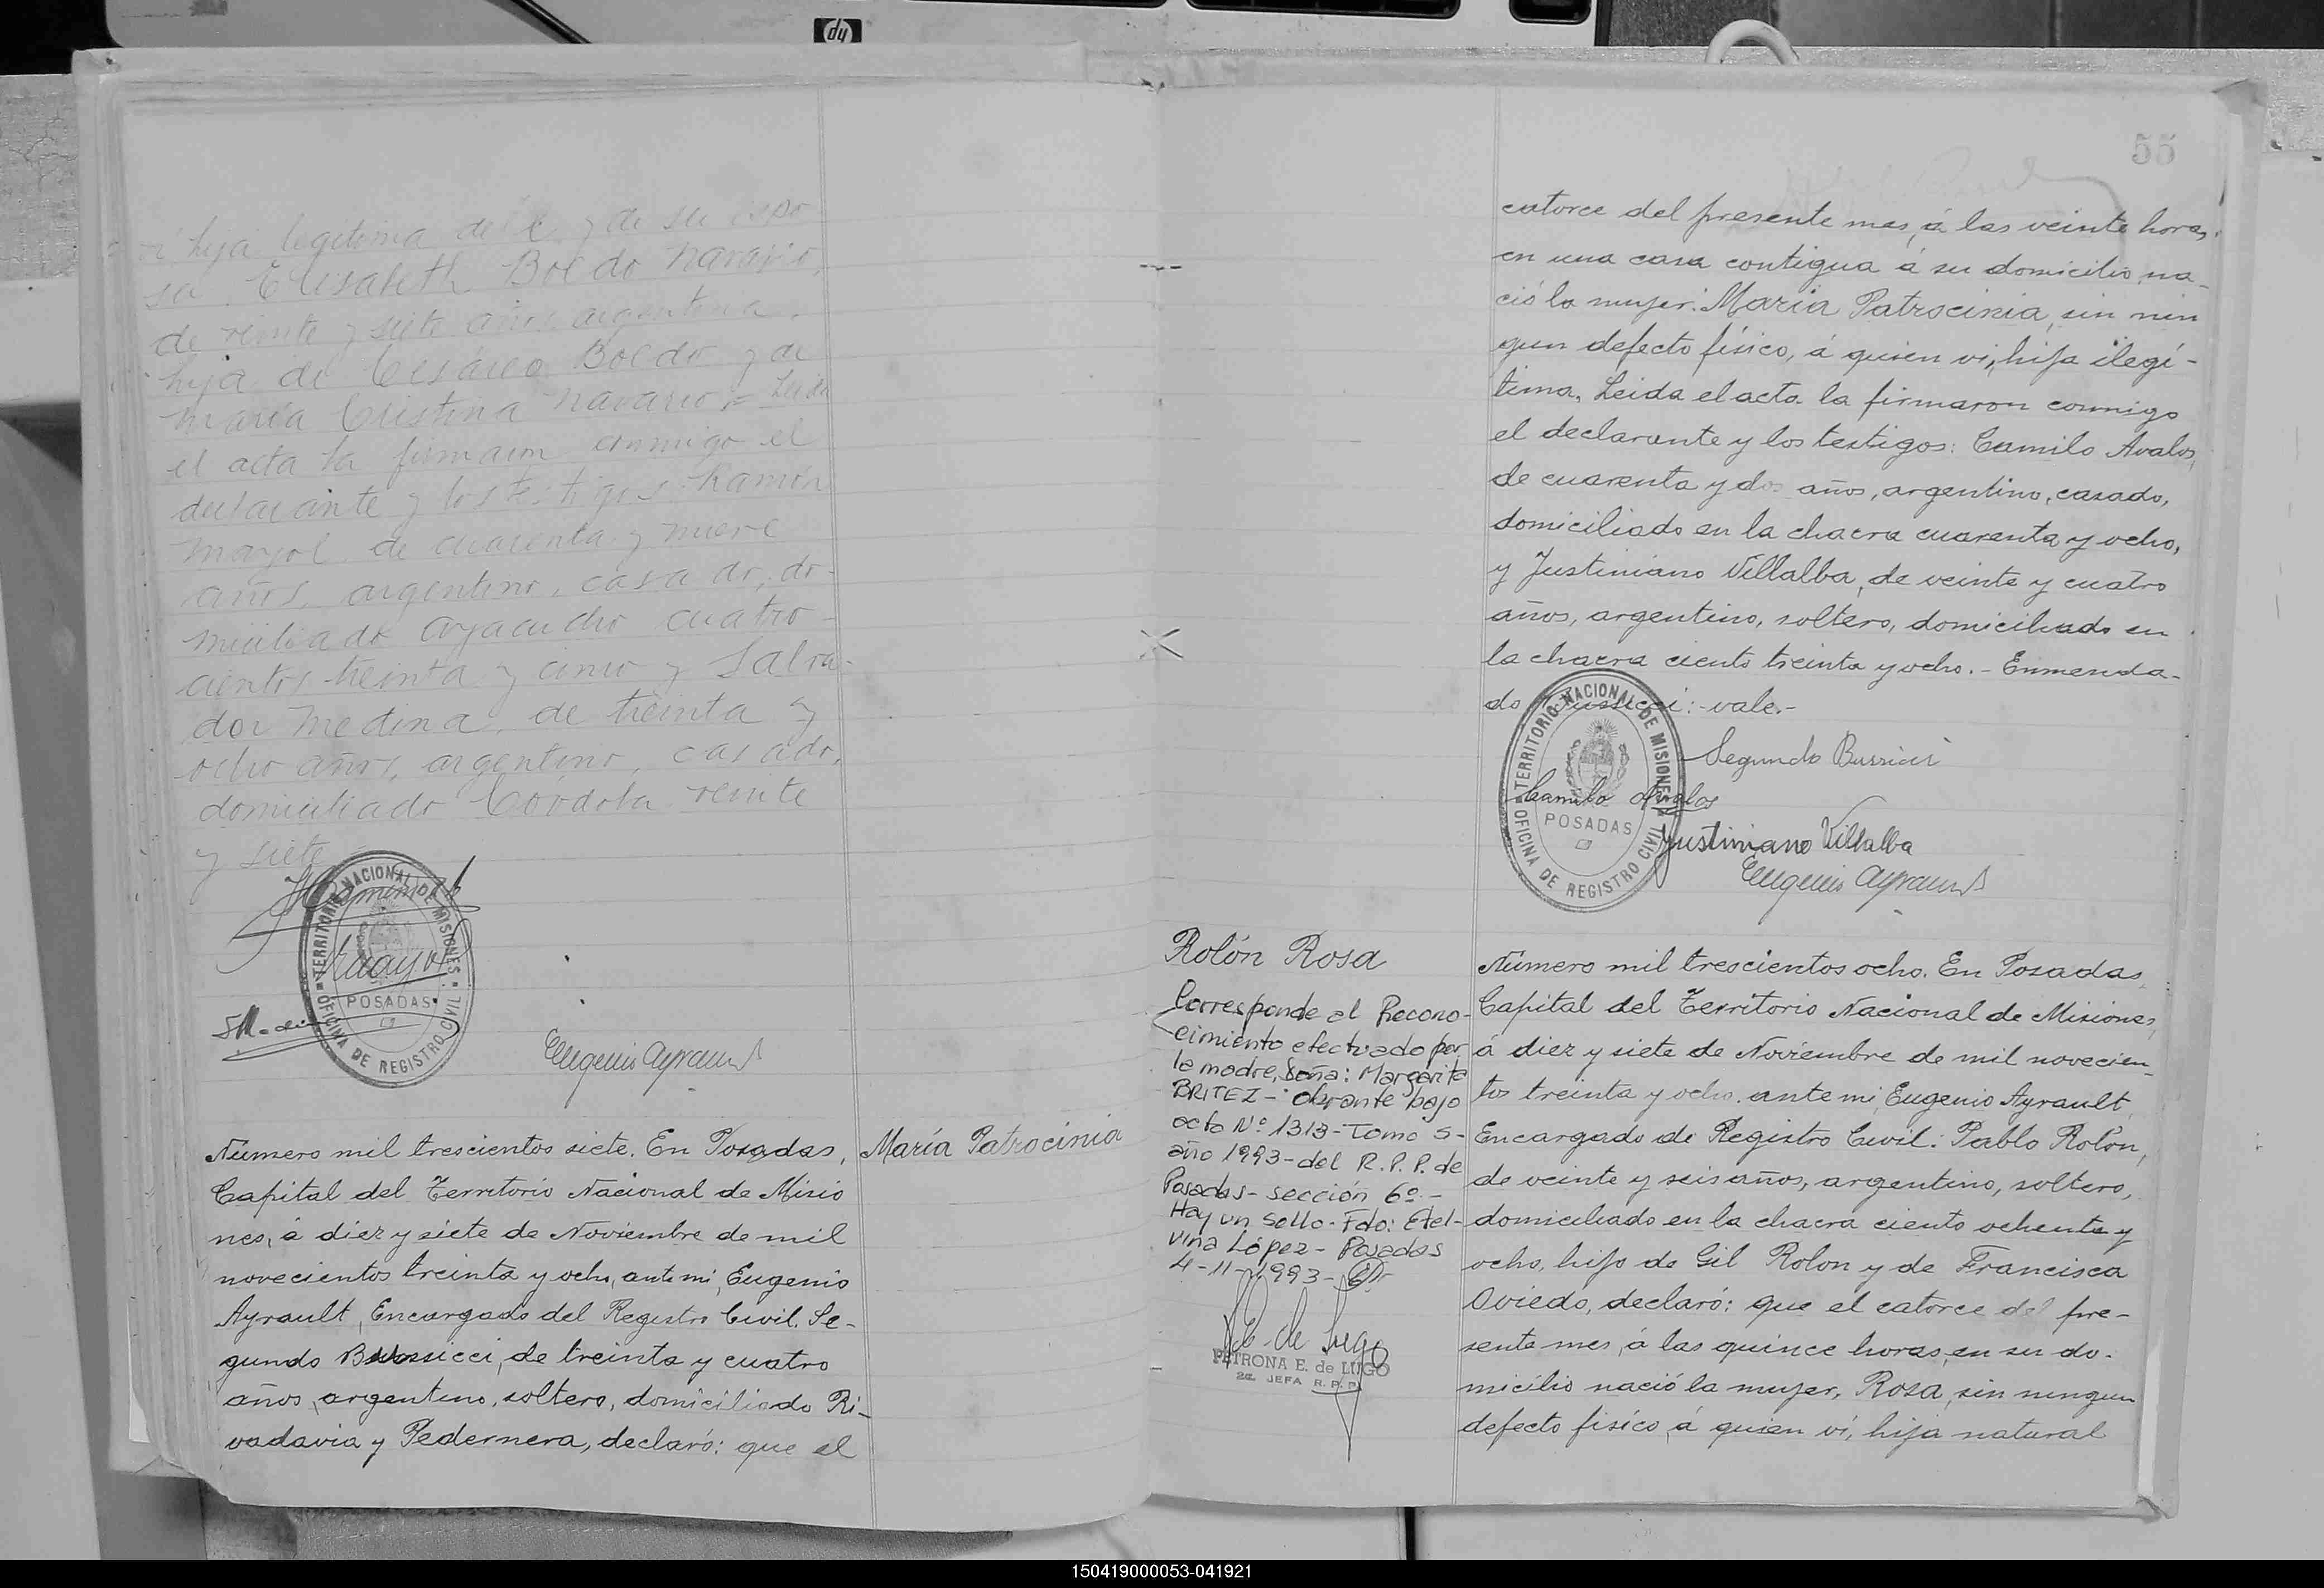 hp
ví hija legitima de él y de su espo
sa Elisabeth Boldo Navarro,
de veinte y siete años argentina,
hija de Cesáreo Boldo y de
María Cristina Navarro = Leida
el acta la firmaron conmigo el
declarante y los testigos: Ramón
Mayol de cuarenta y nueve
años, argentino, casado, do-
miciliado Ayacucho cuatro-
cientos treinta y cinco y Salva-
dor Medina, de treinta y
ocho años, argentino, casado,
domiciliado Córdoba veinte
y siete
TERRITORIO NACIONAL DE MISIONES
POSADAS
OFICINA DE REGISTRO CIVIL
Eugenio Ayrault
Número mil trescientos siete. En Posadas,
María Patrocinia
Capital del Territorio Nacional de Misio
nes, á diez y siete de Noviembre de mil
novecientos treinta y ocho, ante mi, Eugenio
Ayrault, Encargado del Registro Civil. Se-
gundo Bussicci, de treinta y cuatro
años, argentino, soltero, domiciliado Ri-
vadavia y Pedernera, declaró: que el
55
catorce del presente mes, á las veinte horas,
en una casa contigua á su domicilio, na-
ció la mujer: Maria Patrocinia, sin nin
gun defecto físico, á quien vi, hija ilegí-
tima. Leida el acta la firmaron conmigo
el declarante y los testigos: Camilo Avalos,
de cuarenta y dos años, argentino, casado,
domiciliado en la chacra cuarenta y ocho,
y Justiniano Villalba, de veinte y cuatro
años, argentino, soltero, domiciliado en
la chacra ciento treinta y ocho.- Enmenda-
do Bussicci: -vale.-
TERRITORIO NACIONAL DE MISIONES
POSADAS
OFICINA DE REGISTRO CIVIL
Segundo Bussicci
Camilo Avalos
Justiniano Villalba
Eugenio Ayrault
Rolón Rosa
Corresponde al Recono-
cimiento efectuado por
la madre, Doña: Margarita
BRITEZ - obrante bajo
acto Nº 1313 - Tomo 5-
año 1993 - del R.P.P. de
Posadas - sección 6º -
Hay un sello - Fdo: Etel-
vina López - Posadas
4-11-1993-
PETRONA E. de LUGO
2da. JEFA R.P.P.
Número mil trescientos ocho. En Posadas,
Capital del Territorio Nacional de Misiones,
á diez y siete de Noviembre de mil novecien-
tos treinta y ocho. ante mi, Eugenio Ayrault,
Encargado de Registro Civil: Pablo Rolón,
de veinte y seis años, argentino, soltero,
domiciliado en la chacra ciento ochenta y
ocho, hijo de Gil Rolon y de Francisca
Oviedo, declaró: que el catorce del pre-
sente mes, á las quince horas, en su do-
micilio nació la mujer, Rosa, sin ningun
defecto físico, á quien ví, hija natural
150419000053-041921